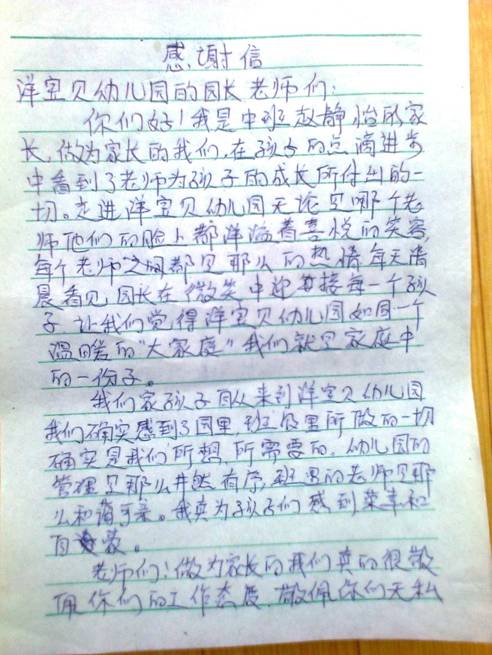 感谢信
洋宝贝幼儿园的园长老师们:
你们好!我是中班赵静怡的家
长,做为家长的我们,在孩子的点滴进步
中看到了老师为孩子的成长所付出的一
切。走进洋宝贝幼儿园无论见哪个老
师他们的脸上都洋溢着喜悦的笑容,
每个老师之间都是那么的热情每天清
晨看见园长在微笑中迎接每一个孩
子让我们觉得洋宝贝幼儿园如同一个
温暖的“大家庭”我们就是家庭中
的一份子。
我们家孩子自从来到洋宝贝幼儿园
我们确实感到了园里,班级里所做的一切
确实是我们所想,所需要的,幼儿园的
管理是那么井然有序,班里的老师是那
么和蔼可亲。我真为孩子们感到荣幸和
自豪。
老师们:做为家长的我们真的很敬
佩你们的工作态度,敬佩你们无私